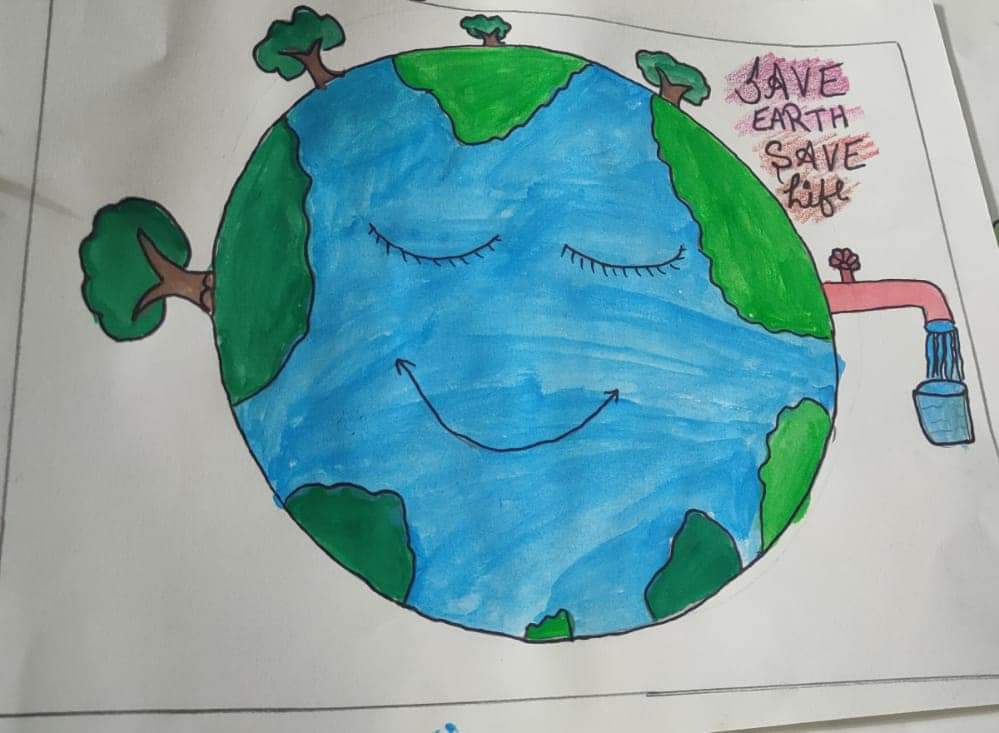 SAVE
EARTH
SAVE
Life